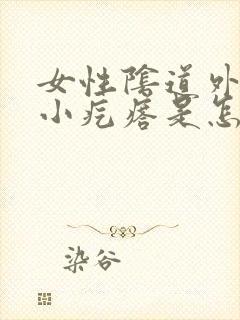 女性陰道外
小疙瘩是怎
染谷